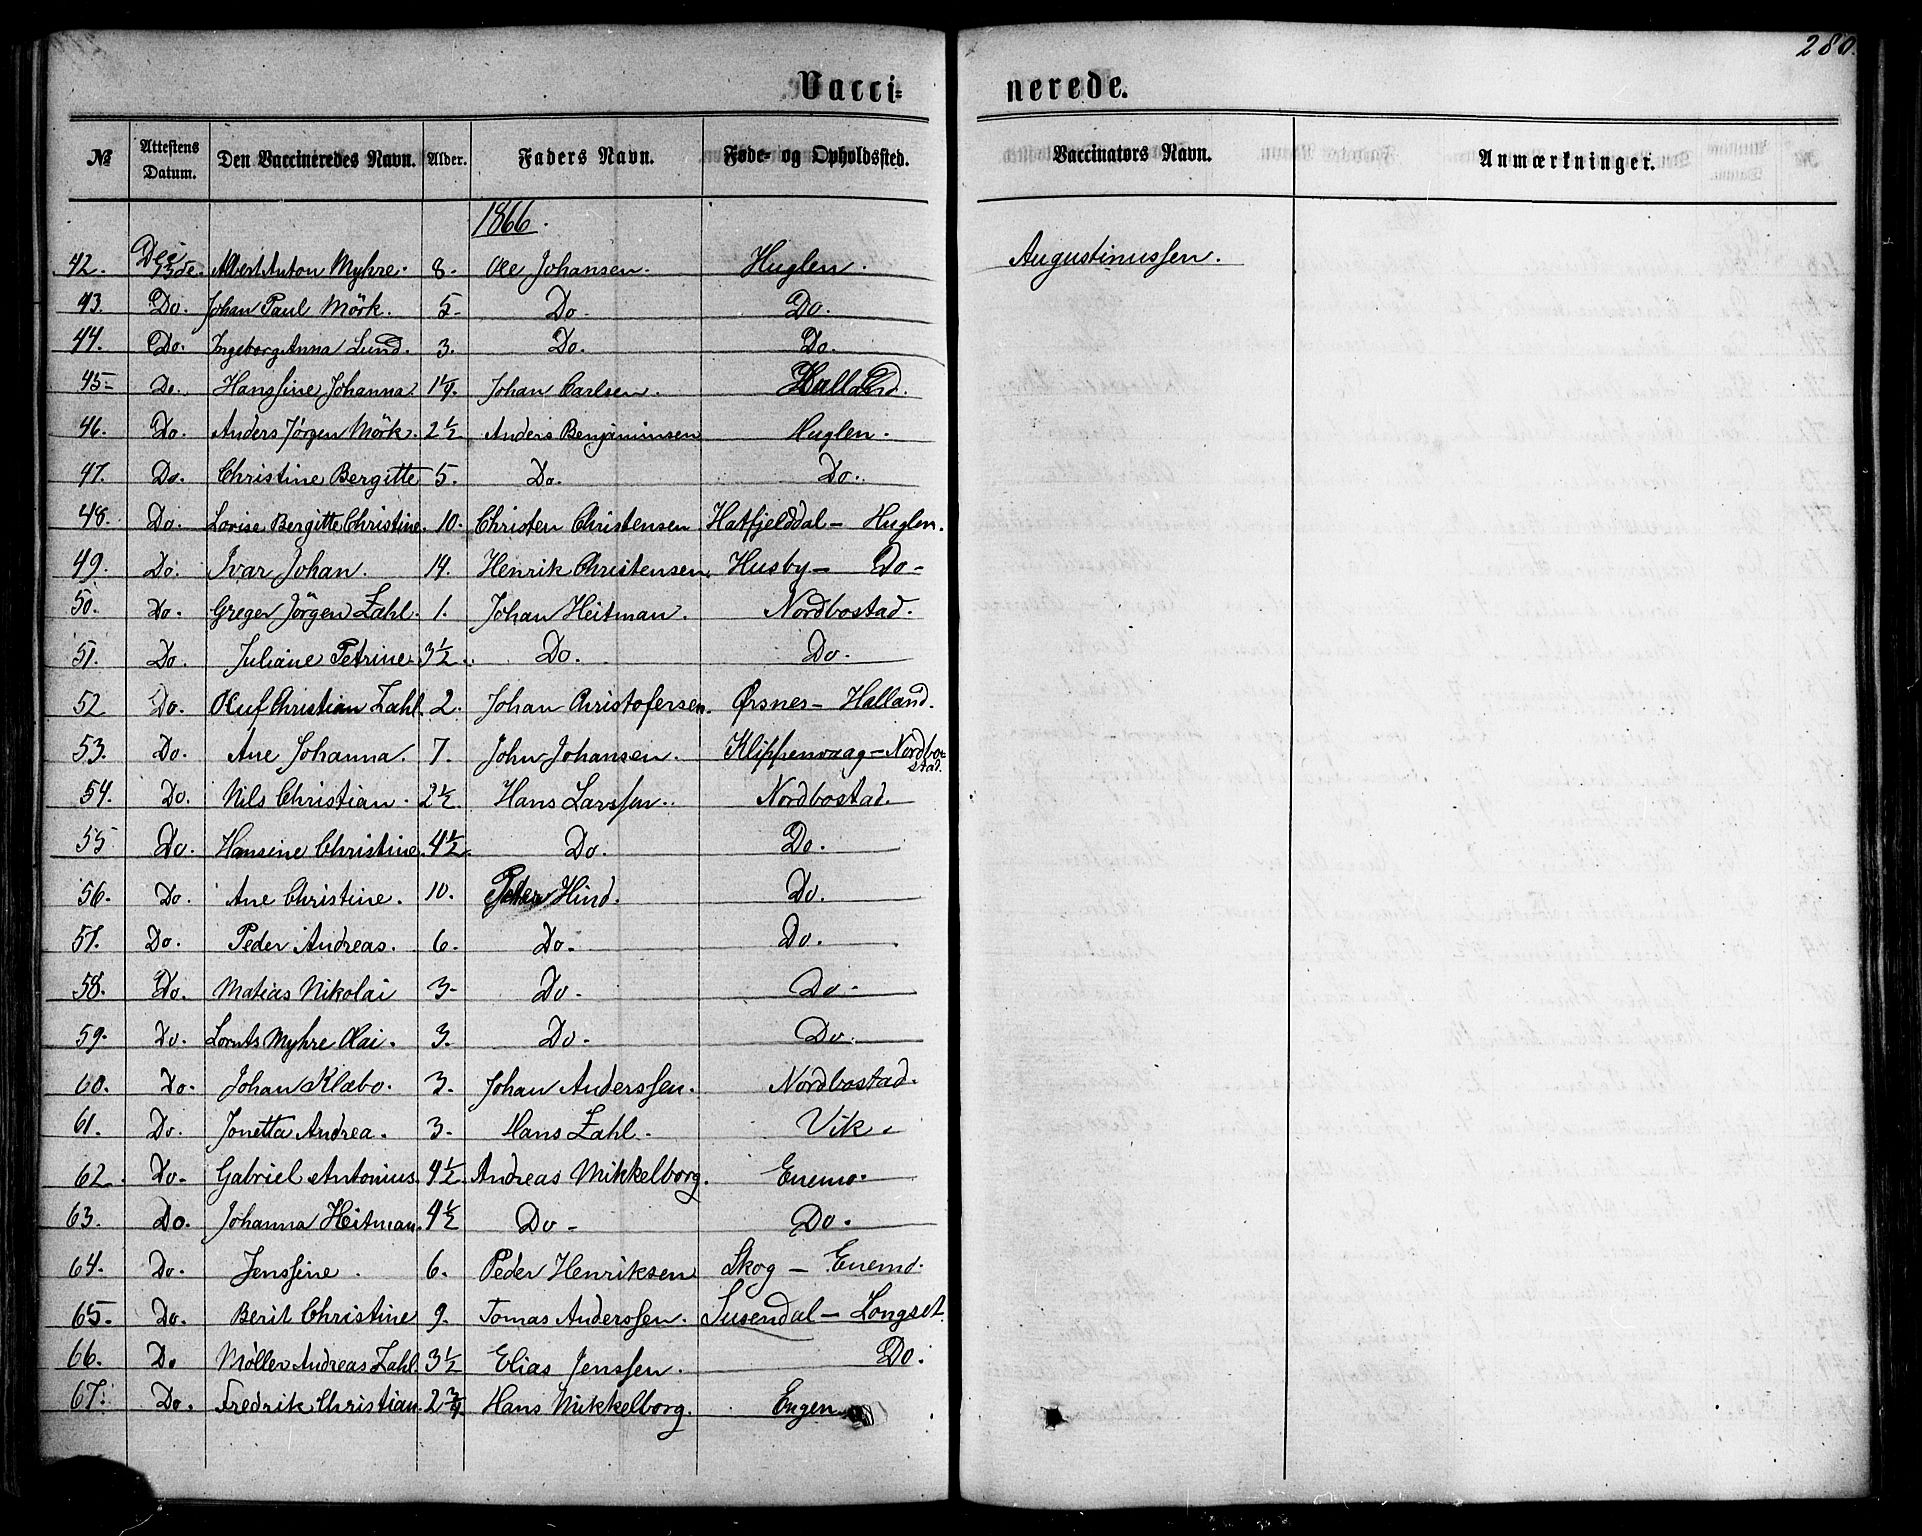 280.
Vacci= nerede.
№ | Attestens Datum. | Den Vaccineredes Navn. | Alder. | Faders Navn. | Føde- og Opholdssted. | Vaccinators Navn. | Anmærkninger.
1866.
42. | Dec 13de. | Albert Anton Myhre. | 8. | Ole Johansen. | Huglen. | Augustinussen.
43. | Do. | Johan Paul Mörk. | 5. | Do. | Do.
44. | Do. | Ingeborg Anna Lund. | 3. | Do. | Do.
45 | Do. | Hanssine Johanna. | 1 1/4. | Johan Carlsen. | Halland.
46. | Do. | Anders Jörgen Mörk. | 2 1/2 | Anders Benjaminsen | Huglen.
47. | Do. | Christine Bergitte | 5. | Do. | Do.
48. | Do. | Lovise Bergitte Christine. | 10. | Christen Christensen | Hatfjelddal - Huglen.
49. | Do. | Ivar Johan. | 14. | Henrik Christensen. | Husby - Do-
50. | Do. | Greger Jörgen Zahl. | 1. | Johan Heitman. | Nordbostad.
51. | Do. | Juliane Petrine. | 3 1/2. | Do. | Do.
52 | Do. | Oluf Christian Zahl. | 2. | Johan Christofersen. | Ørsnes - Halland.
53. | Do. | Ane Johanna. | 7. | John Johansen. | Klippenvaag - Nordbo-
stad.
54. | Do. | Nils Christian. | 2 1/2 | Hans Larssen. | Nordbostad.
55 | Do. | Hansine Christine. | 4 1/2. | Do. | Do.
56. | Do. | Ane Christine. | 10. | Peder Hind. | Do.
57. | Do. | Peder Andreas. | 6. | Do. | Do.
58. | Do. | Matias Nikolai | 3. | Do. | Do.
59. | Do. | Lornts Myhre Olai. | 3. | Do. | Do.
60. | Do. | Johan Klæbo. | 3. | Johan Anderssen. | Nordbostad.
61. | Do. | Jonetta Andrea. | 3. | Hans Zahl. | Vik.
62. | Do. | Gabriel Antonius. | 4 1/2. | Andreas Mikkelborg. | Enemo.
63. | Do. | Johanna Heitman. | 4 1/2 | Do- | Do.
64. | Do. | Jenssine. | 6. | Peder Henriksen | Skog - Enemo.
65 | Do. | Berit Christine | 9. | Tomas Anderssen. | Susendal - Longset.
66. | Do | Møller Andreas Zahl. | 3 1/2 | Elias Jenssen. | Do.
67. | Do. | Fredrik Christian. | 2 3/4. | Hans Mikkelborg. | Engen